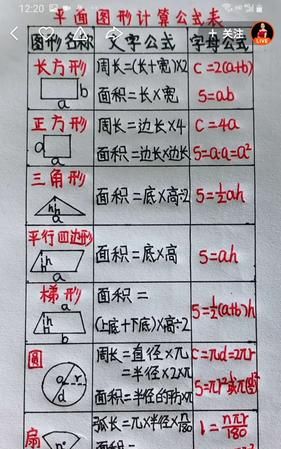 12:20
75
平面图形计算公式表
+ 关注
LIVE
图形名称 文字公式 字母公式
长方形 周长=(长+宽)×2 C=2(a+b)
b
a
面积=长×宽 S=ab
正方形 周长=边长×4 C=4a
a
a
面积=边长×边长 S=a·a=a²
三角形
h
a
面积=底×高÷2 S=½ah
平行四边形
h
a
面积=底×高 S=ah
梯形
a
h
b
面积=
(上底+下底)×高÷2 S=½(a+b)h
圆
r
d
周长=直径×π C=πd=2πr
=半径×2×π
面积=半径的平方×π S=πr²或π
扇
n°
弧长=π×半径×n/180 l=nπr/180
面积=